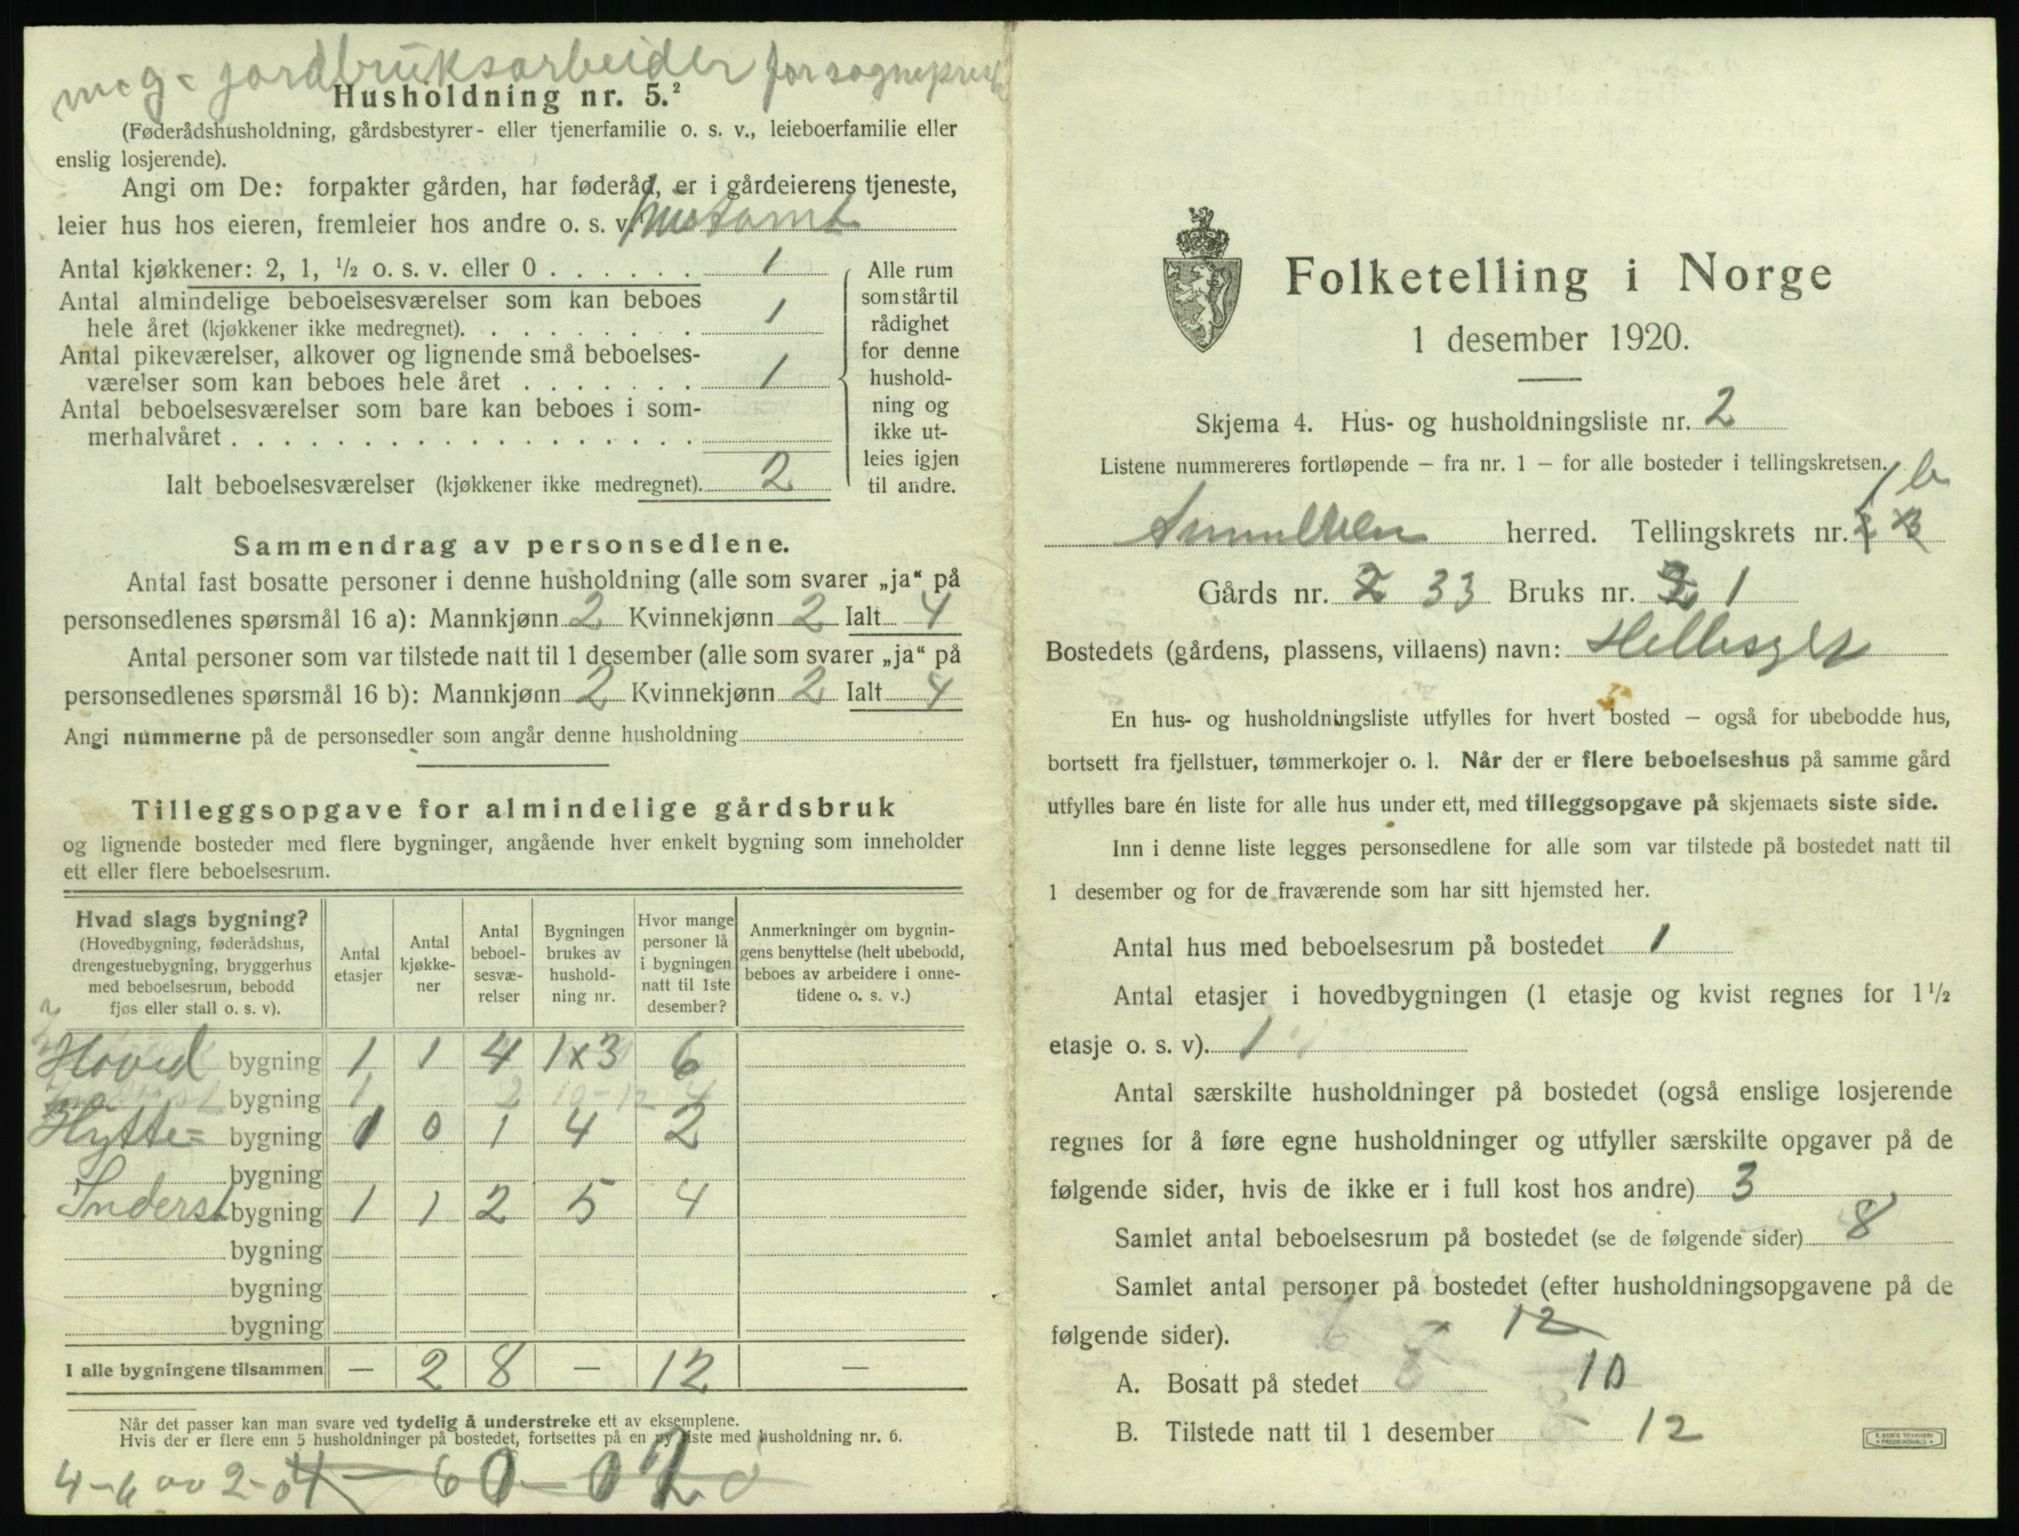 m. g. jordbruksarbeider for sogneprest
Husholdning nr. 5.²
(Føderådshusholdning, gårdsbestyrer- eller tjenerfamilie o. s. v., leieboerfamilie eller
enslig losjerende).
Angi om De: forpakter gården, har føderåd, er i gårdeierens tjeneste,
leier hus hos eieren, fremleier hos andre o. s. v.
Antal kjøkkener: 2, 1, ½ o. s. v. eller 0 . . . . . . 1
Antal almindelige beboelsesværelser som kan beboes
hele året (kjøkkener ikke medregnet). . . . . . . . . 1
Antal pikeværelser, alkover og lignende små beboelses-
værelser som kan beboes hele året . . . . . . . 1
Antal beboelsesværelser som bare kan beboes i som-
merhalvåret . . . . . . . . . . . . . . . . . .
Ialt beboelsesværelser (kjøkkener ikke medregnet). 2
Alle rum
som står til
rådighet
for denne
hushold-
ning og
ikke ut-
leies igjen
til andre.
Sammendrag av personsedlene.
Antal fast bosatte personer i denne husholdning (alle som svarer „ja“ på
personsedlenes spørsmål 16 a): Mannkjønn 2 Kvinnekjønn 2 Ialt 4
Antal personer som var tilstede natt til 1 desember (alle som svarer „ja“ på
personsedlenes spørsmål 16 b): Mannkjønn 2 Kvinnekjønn 2 Ialt 4
Angi nummerne på de personsedler som angår denne husholdning
Tilleggsopgave for almindelige gårdsbruk
og lignende bosteder med flere bygninger, angående hver enkelt bygning som inneholder
ett eller flere beboelsesrum.
Hvad slags bygning?
(Hovedbygning, føderådshus,
drengestuebygning, bryggerhus
med beboelsesrum, bebodd
fjøs eller stall o. s. v).
Antal
etasjer
Antal
kjøkke-
ner
Antal
beboel-
sesvæ-
relser
Bygningen
brukes av
hushold-
ning nr.
Hvor mange
personer lå
i bygningen
natt til 1ste
desember?
Anmerkninger om bygnin-
gens benyttelse (helt ubebodd,
beboes av arbeidere i onne-
tidene o. s. v.)
Hoved bygning 1 1 4 1x3 6
bygning 1 2
Hytte= bygning 1 0 1 4 2
bygning
Inderst bygning 1 1 2 5 4
bygning
bygning
bygning
I alle bygningene tilsammen — 2 8 — 12 —
Når det passer kan man svare ved tydelig å understreke ett av eksemplene.
Hvis der er flere enn 5 husholdninger på bostedet, fortsettes på en ny liste med husholdning nr. 6.
Folketelling i Norge
1 desember 1920.
Skjema 4. Hus- og husholdningsliste nr. 2
Listene nummereres fortløpende – fra nr. 1 – for alle bosteder i tellingskretsen.
1 b
Sunnelven herred. Tellingskrets nr. 2 3
Gårds nr. 2 33 Bruks nr. 2 1
Bostedets (gårdens, plassens, villaens) navn: Hellesylt
En hus- og husholdningsliste utfylles for hvert bosted – også for ubebodde hus,
bortsett fra fjellstuer, tømmerkojer o. l. Når der er flere beboelseshus på samme gård
utfylles bare én liste for alle hus under ett, med tilleggsopgave på skjemaets siste side.
Inn i denne liste legges personsedlene for alle som var tilstede på bostedet natt til
1 desember og for de fraværende som har sitt hjemsted her.
Antal hus med beboelsesrum på bostedet 1
Antal etasjer i hovedbygningen (1 etasje og kvist regnes for 1½
etasje o. s. v). 1
Antal særskilte husholdninger på bostedet (også enslige losjerende
regnes for å føre egne husholdninger og utfyller særskilte opgaver på de
følgende sider, hvis de ikke er i full kost hos andre) 3
Samlet antal beboelsesrum på bostedet (se de følgende sider) 8
Samlet antal personer på bostedet (efter husholdningsopgavene på de
følgende sider). 12
A. Bosatt på stedet 8 10
B. Tilstede natt til 1 desember 12